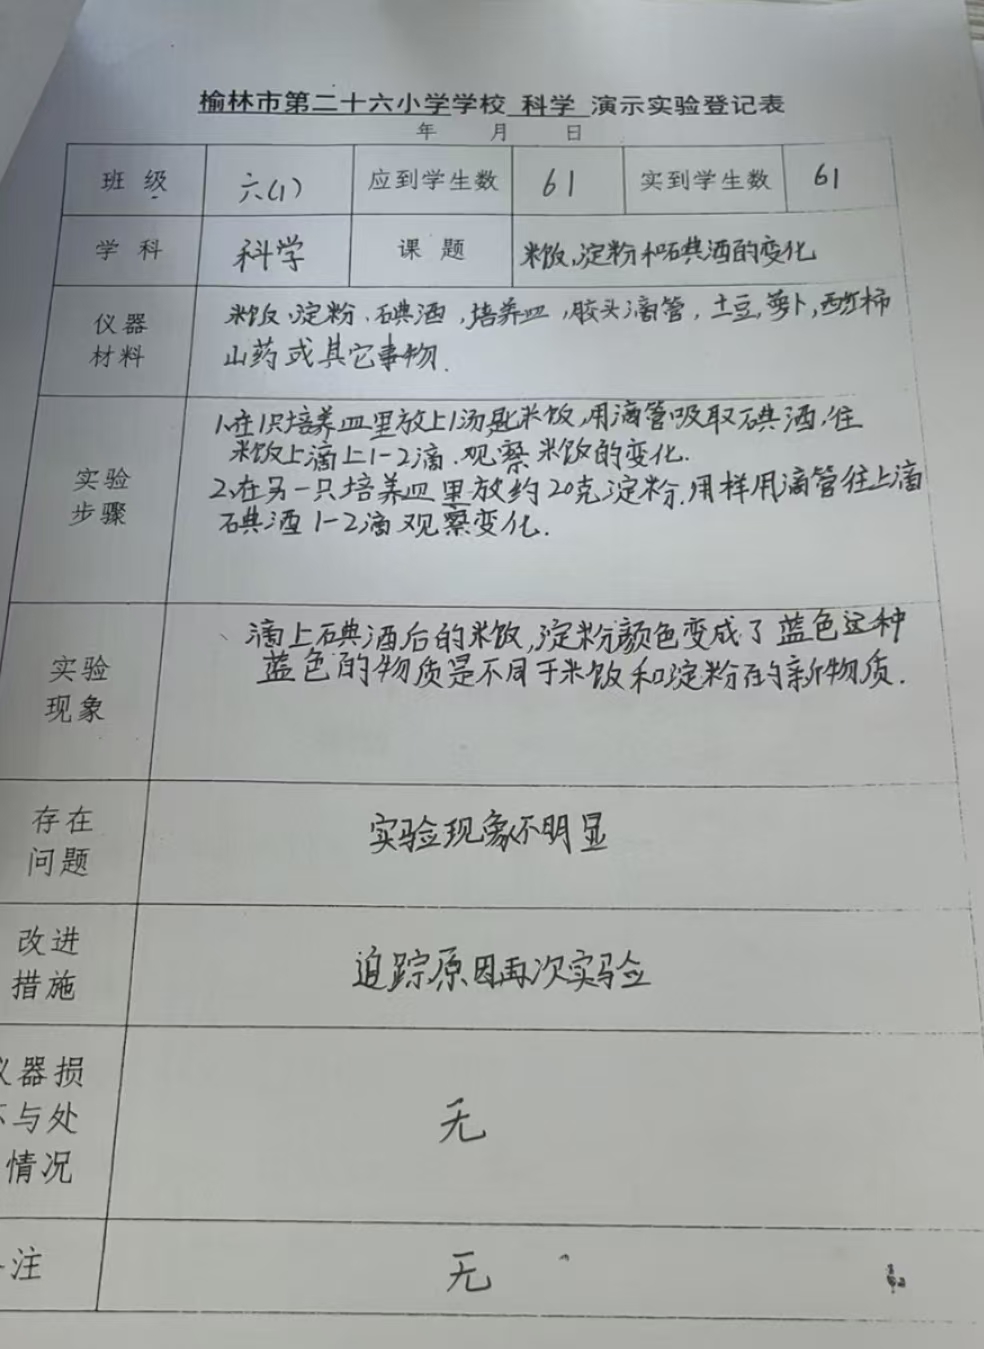 榆林市第二十六小学学校 科学 演示实验登记表
年 月 日
班级 六(1) 应到学生数 61 实到学生数 61
学科 科学 课题 米饭、淀粉和碘酒的变化
仪器材料 米饭、淀粉、碘酒,培养皿,胶头滴管,土豆,萝卜,西红柿
山药或其它事物.
实验步骤 1.在1只培养皿里放上1汤匙米饭,用滴管吸取碘酒,往
米饭上滴上1-2滴.观察米饭的变化.
2.在另一只培养皿里放约20克淀粉.用样用滴管往上滴
碘酒1-2滴观察变化.
实验现象 、滴上碘酒后的米饭,淀粉颜色变成了蓝色这种
蓝色的物质是不同于米饭和淀粉的新物质.
存在问题 实验现象不明显
改进措施 追踪原因再次实验
器损
与处
情况 无
注 无